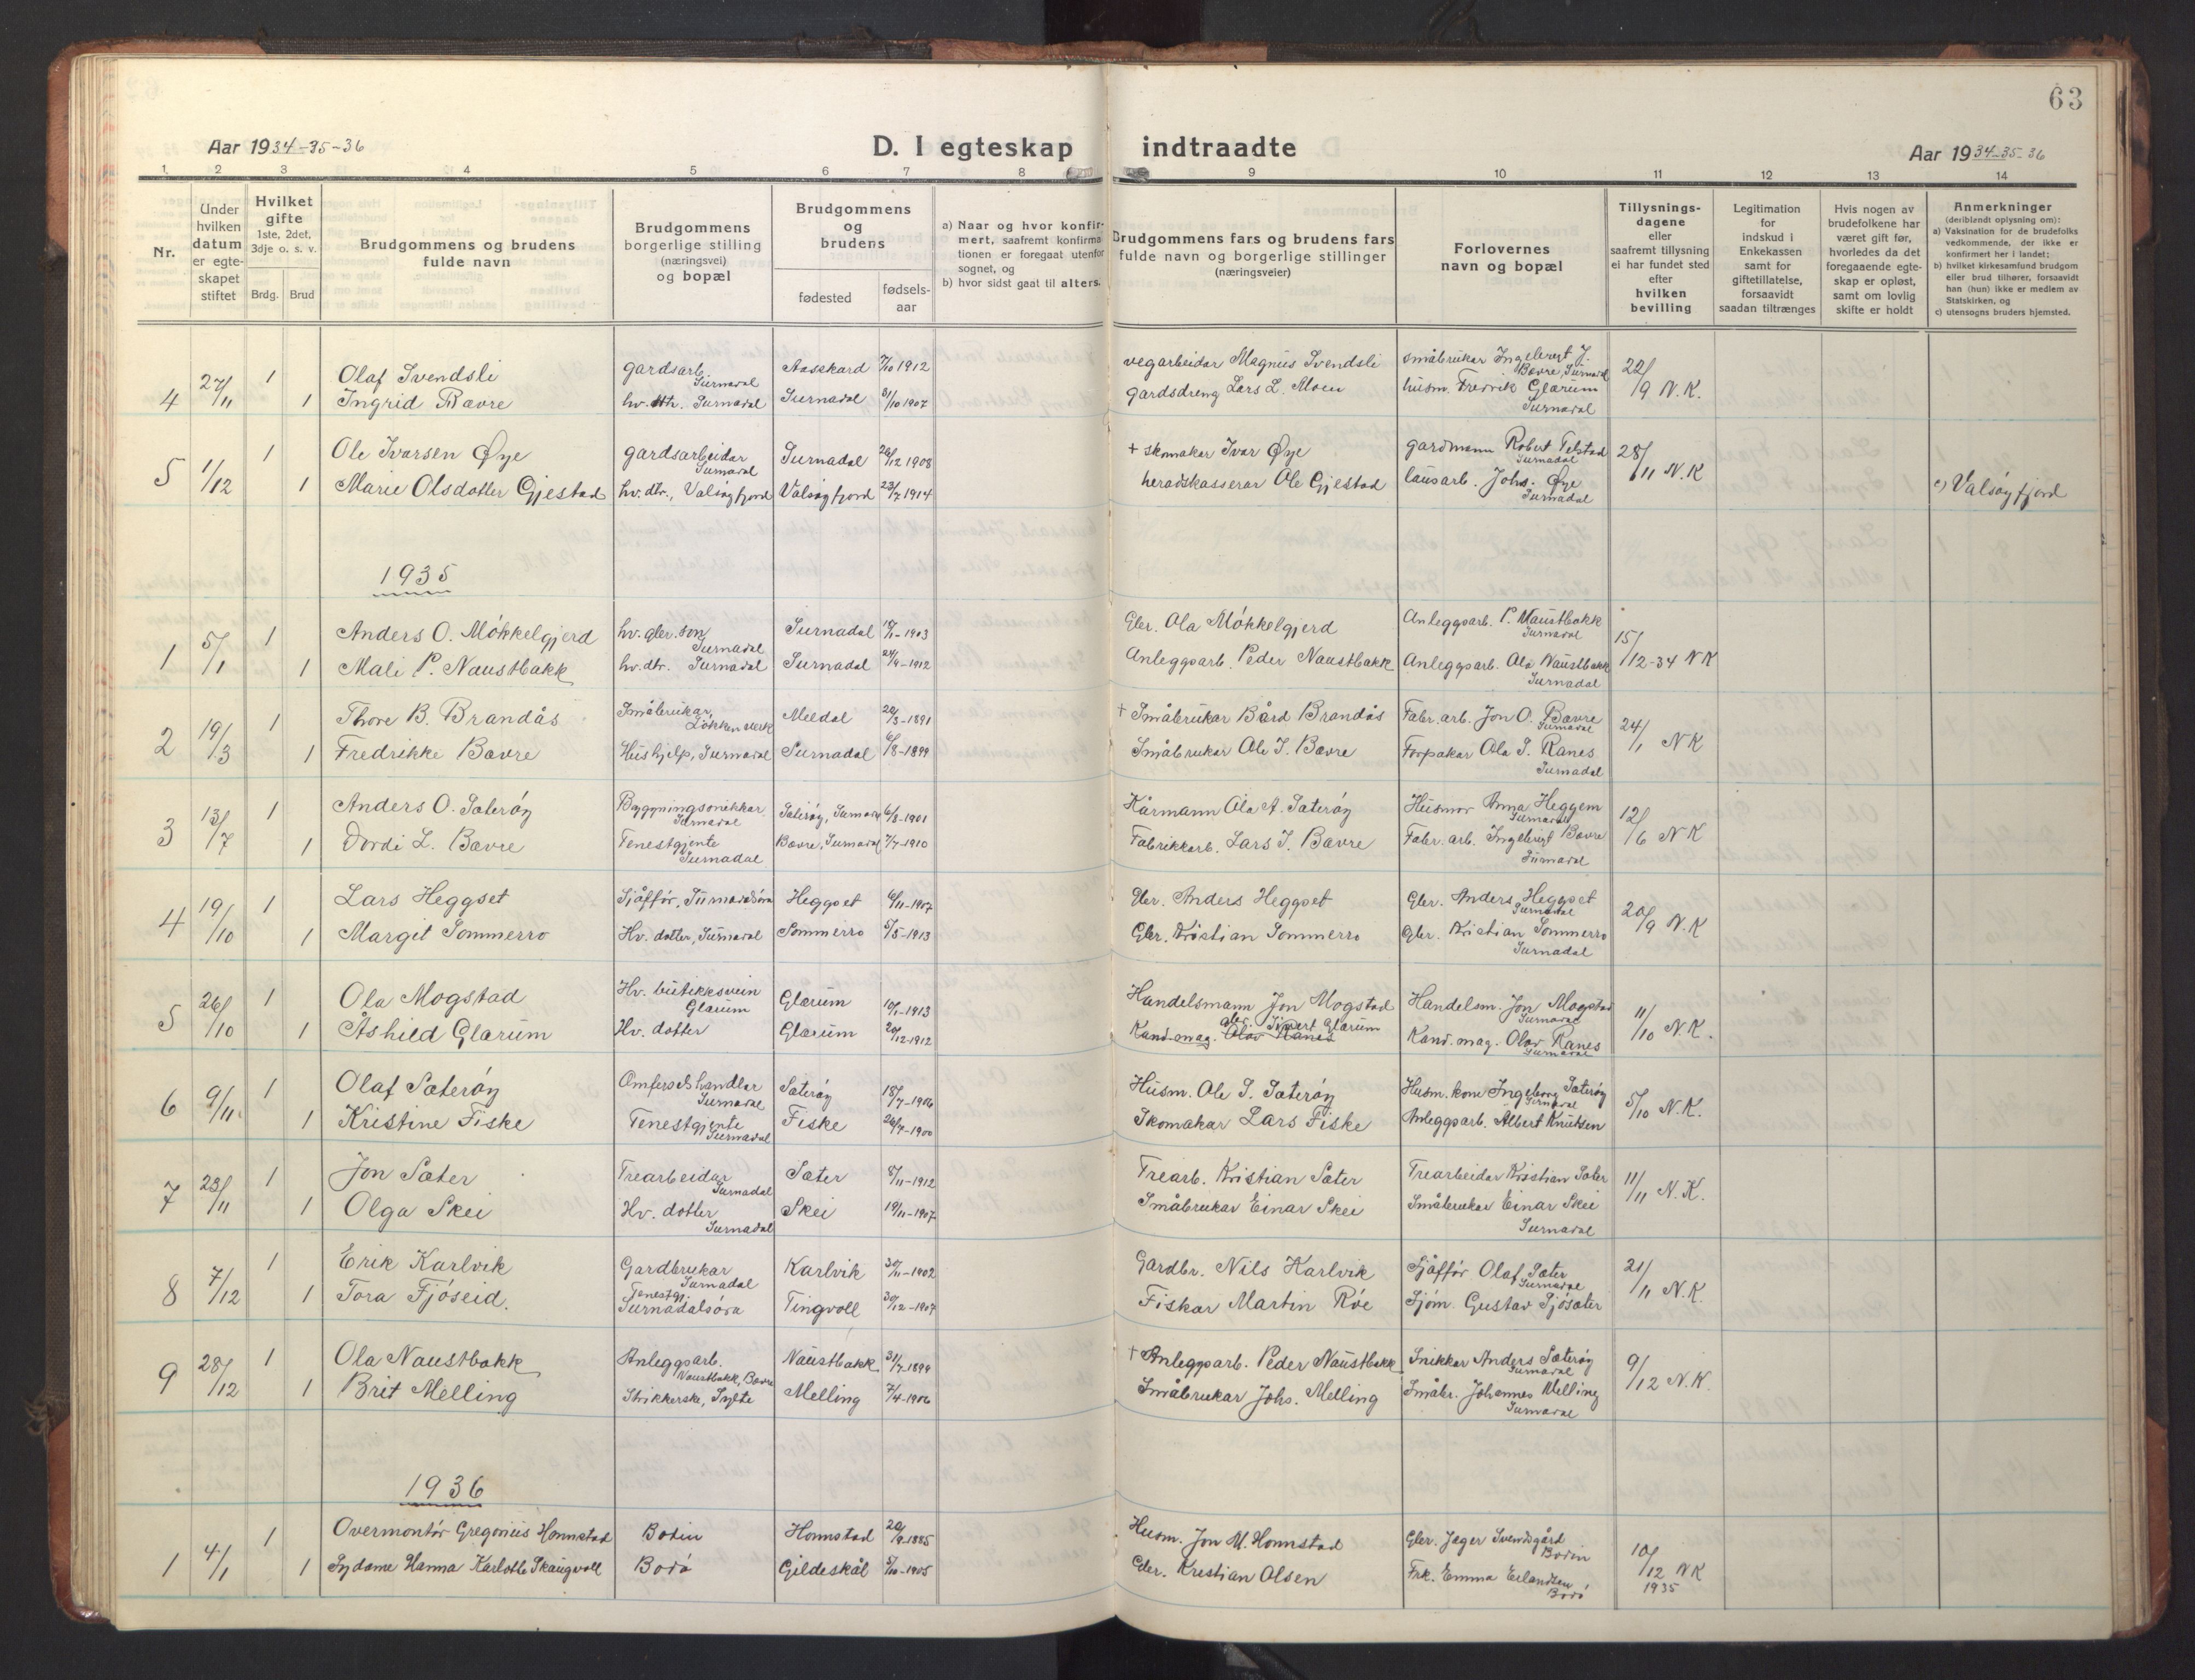 63
Aar 1934-35-36
D. I egteskap indtraadte
Aar 1934-35-36
1 2 3 4 5 6 7 8 9 10 11 12 13 14
Nr.
Under hvilken datum er egteskapet stiftet
Hvilket gifte 1ste, 2det, 3dje o. s. v.
Brdg. Brud
Brudgommens og brudens fulde navn
Brudgommens borgerlige stilling (næringsvei) og bopæl
Brudgommens og brudens
fødested
fødselsaar
a) Naar og hvor konfirmert, saafremt konfirmationen er foregaat utenfor sognet, og
b) hvor sidst gaat til alters.
Brudgommens fars og brudens fars fulde navn og borgerlige stillinger (næringsveier)
Forlovernes navn og bopæl
Tillysningsdagene eller saafremt tillysning ei har fundet sted efter hvilken bevilling
Legitimation for indskud i Enkekassen samt for giftetillatelse, forsaavidt saadan tiltrænges
Hvis nogen av brudefolkene har været gift før, hvorledes da det foregaaende egteskap er opløst, samt om lovlig skifte er holdt
Anmerkninger (deriblandt oplysning om):
a) Vaksination for de brudefolks vedkommende, der ikke er konfirmert her i landet;
b) hvilket kirkesamfund brudgom eller brud tilhører, forsaavidt han (hun) ikke er medlem av Statskirken, og
c) utensogns bruders hjemsted.
4 27/11 1 Olaf Svendsli gardsarb. Surnadal Aasskard 7/10 1912 vegarbeidar Magnus Svendsli småbrukar Ingebrigt J. Bævre, Surnadal 22/9 N.K.
1 Ingrid Bævre hv. dtr. Surnadal Surnadal 31/10 1907 gardsdreng Lars L. Moen husm. Fredrik Glærum Surnadal
5 1/12 1 Ole Ivarsen Øye gardsarbeidar Surnadal Surnadal 26/12 1908 + skomakar Ivar Øye gardmann Robert Telstad Surnadal 28/11 N.K
1 Marie Olsdotter Gjestad hv. dtr., Valsøyfjord Valsøyfjord 23/7 1914 heradskasserar Ole Gjestad lausarb. Johs. Øye Surnadal c) Valsøyfjord
1935
1 5/1 1 Anders O. Møkkelgjerd hv. gbr. son Surnadal Surnadal 18/1-1903 Gbr. Ola Møkkelgjerd Anleggsarb. P. Naustbakk Surnadal 15/12-34 NK
1 Mali P. Naustbakk hv. dtr. Surnadal Surnadal 24/9-1912 Anleggsarb. Peder Naustbakk Anleggsarb. Ola Naustbakk Surnadal
2 19/3 1 Thore B. Brandås Småbrukar, Løkken verk Meldal 20/3-1891 + Småbrukar Bård Brandås Fabr. arb. Jon O. Bævre Surnadal 24/1 NK
1 Fredrikke Bævre Hushjelp, Surnadal Surnadal 6/8-1899 Småbrukar Ole J. Bævre Forpakar Ola J. Ranes Surnadal
3 13/7 1 Anders O. Sæterøy Bygningssnikkar Surnadal Sæterøy, Surnadal 6/8-1901 Kårmann Ola A. Sæterøy Husmor Anna Heggem Surnadal 12/6 NK
1 Dordi L. Bævre Tenestgjente Surnadal Bævre, Surnadal 7/7-1910 Fabrikkarb. Lars J. Bævre Fabr. arb. Ingebrigt Bævre Surnadal
4 19/10 1 Lars Heggset Sjåffør, Surnadalsøra Heggset 6/11-1907 Gbr. Anders Heggset Gbr. Anders Heggset Surnadal 20/9 N.K
1 Margit Sommerro Hv. dotter, Surnadal Sommerro 5/5-1913 Gbr. Kristian Sommerro Gbr. Kristian Sommerro Surnadal
5 26/10 1 Ola Mogstad Hv. butikksvein Glærum Glærum 10/1-1913 Handelsmann Jon Mogstad Handelsm. Jon Mogstad Surnadal 11/10 N.K.
1 Åshild Glærum Hv. dotter Glærum 20/12-1912 Kand. mag. Olav Ranes gbr. Sivert Glærum Kand. mag. Olav Ranes Surnadal
6 9/11 1 Olaf Sæterøy Omferdshandlar Surnadal Sæterøy 18/7-1906 Husm. Ole J. Sæterøy Husm. kone Ingeborg Sæterøy Surnadal 5/10 N.K.
1 Kristine Fiske Tenestgjente Surnadal Fiske 26/7-1900 Skomakar Lars Fiske Anleggsarb. Albert Knutsen
7 23/11 1 Jon Sæter Trearbeidar Surnadal Sæter 8/11-1912 Trearb. Kristian Sæter Trearbeidar Kristian Sæter 11/11 N.K.
1 Olga Skei Hv. dotter Surnadal Skei 19/11-1907 Småbrukar Einar Skei Småbrukar Einar Skei Surnadal
8 7/12 1 Erik Karlvik Gardbrukar Surnadal Karlvik 30/11-1902 Gardbr. Nils Karlvik Sjåffør Olaf Sæter Surnadal 21/11 N.K.
1 Tora Fjøseid. Tenestgj. Surnadalsøra Tingvoll 30/12-1907 Fiskar Martin Røe Sjøm. Gustav Sjøsæter
9 28/12 1 Ola Naustbakk Anleggsarb. Naustbakk, Bævre Naustbakk 31/7-1899 + Anleggsarb. Peder Naustbakk Snikkar Anders Sæterøy Surnadal 9/12 N.K.
1 Brit Melling Strikkerske, Sylte Melling 7/4-1906 Småbrukar Johs. Melling Småbr. Johannes Melling Surnadal
1936
1 4/1 1 Overmontør Gregorius Honnstad Bodin Honnstad 20/9-1885 Husm. Jon M. Honnstad Gbr. Jager Svendsgård Bodin 10/12 NK 1935
1 Sydame Hanna Karlotte Skaugvoll Bodø Gildeskål 5/10-1905 Gbr. Kristian Olsen Frk. Emma Erlandsen, Bodø